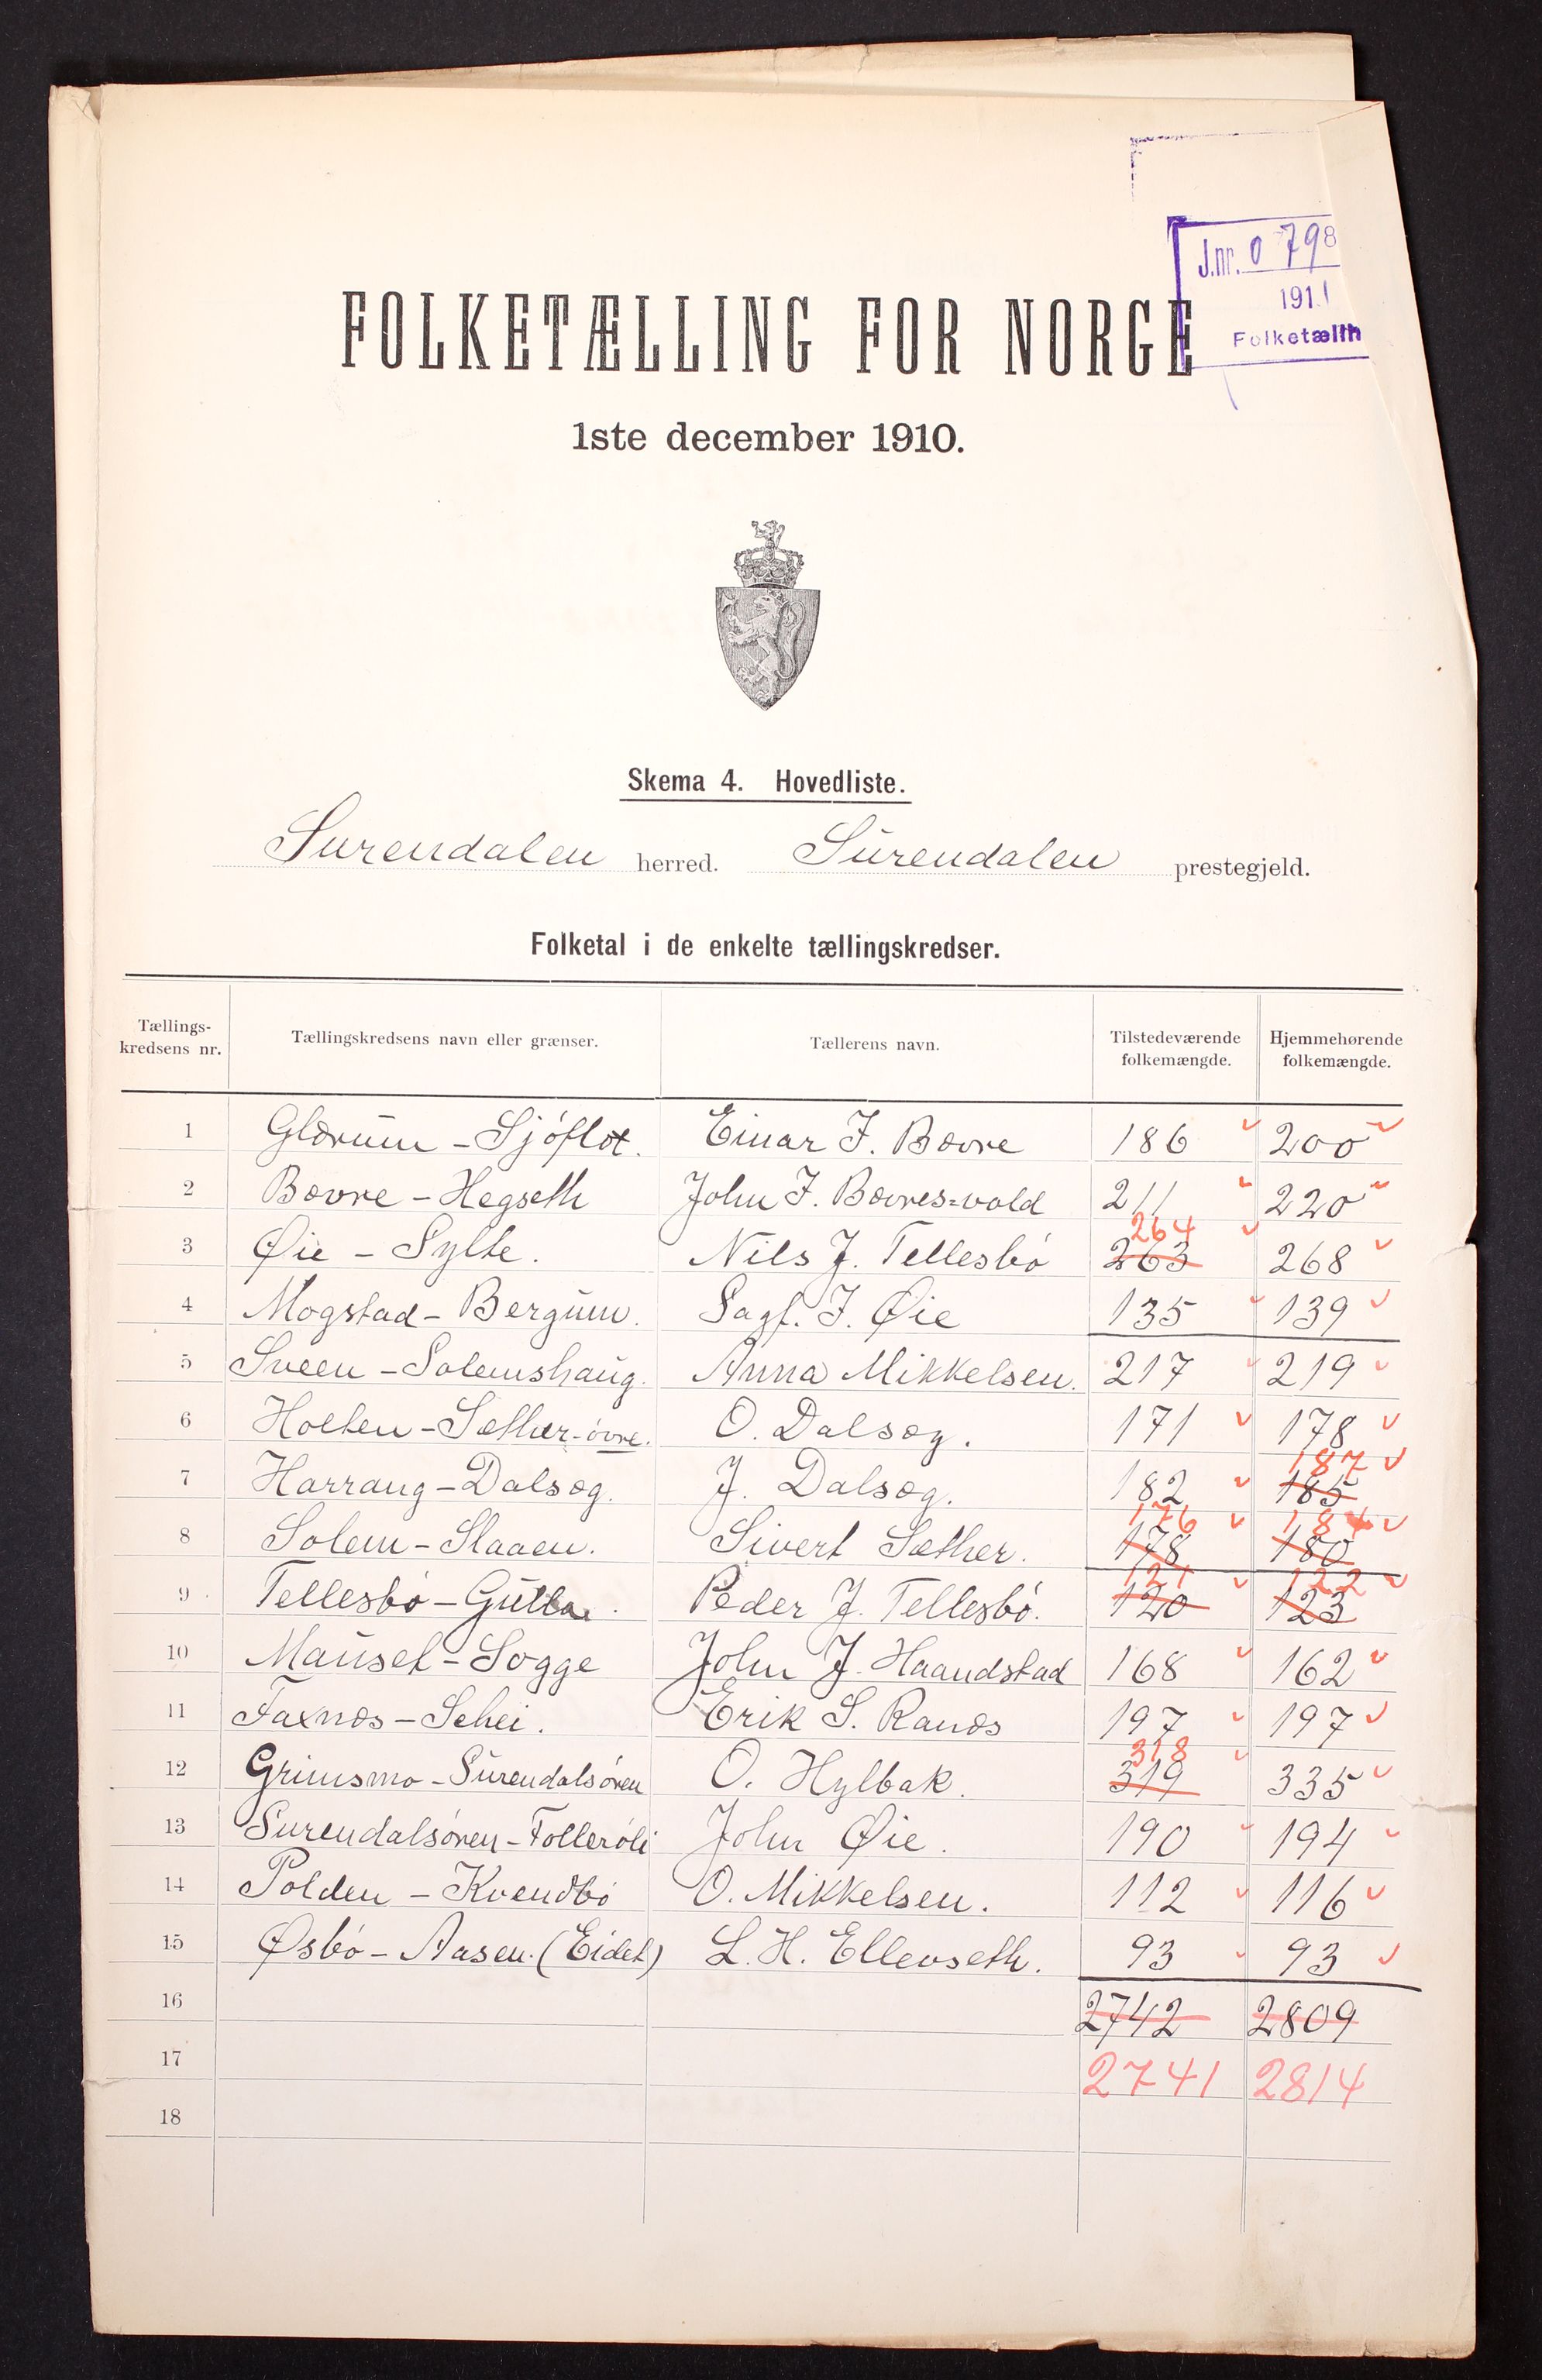 J.nr. 0798
1911
Folketælln
FOLKETÆLLING FOR NORGE
1ste december 1910.
Skema 4. Hovedliste.
Surendalen herred. Surendalen prestegjeld.
Folketal i de enkelte tællingskredser.
Tællings-kredsens nr. Tællingskredsens navn eller grænser. Tællerens navn. Tilstedeværende folkemængde. Hjemmehørende folkemængde.
1 Glærum - Sjøflot. Einar J. Bævre 186 200
2 Bævre - Hegseth John J. Bævres=vold 211 220
3 Øie - Sylte. Nils J. Tellesbø 263 264 268
4 Mogstad - Bergum. J. Øie 135 139
5 Sveen - Solemshaug. Anna Mikkelsen. 217 219
6 Holten - Sæther-øvre. O. Dalsæg. 171 178
7 Harrang - Dalsæg. J. Dalsæg. 182 185 187
8 Solem - Slaaen. Sivert Sæther. 178 176 180 184
9 Tellesbø - Gulla. Peder J. Tellesbø. 120 121 123 122
10 Mauset - Sogge John J. Haandstad 168 162
11 Faxnæs - Schei. Erik S. Ranæs 197 197
12 Grimsmo - Surendalsøren O. Hylbak. 319 318 335
13 Surendalsøren - Follerøli John Øie. 190 194
14 Polden - Kvendbø O. Mikkelsen. 112 116
15 Øsbø - Aasen. (Eidet) L. H. Ellevseth. 93 93
16 2742 2809
17 2741 2814
18